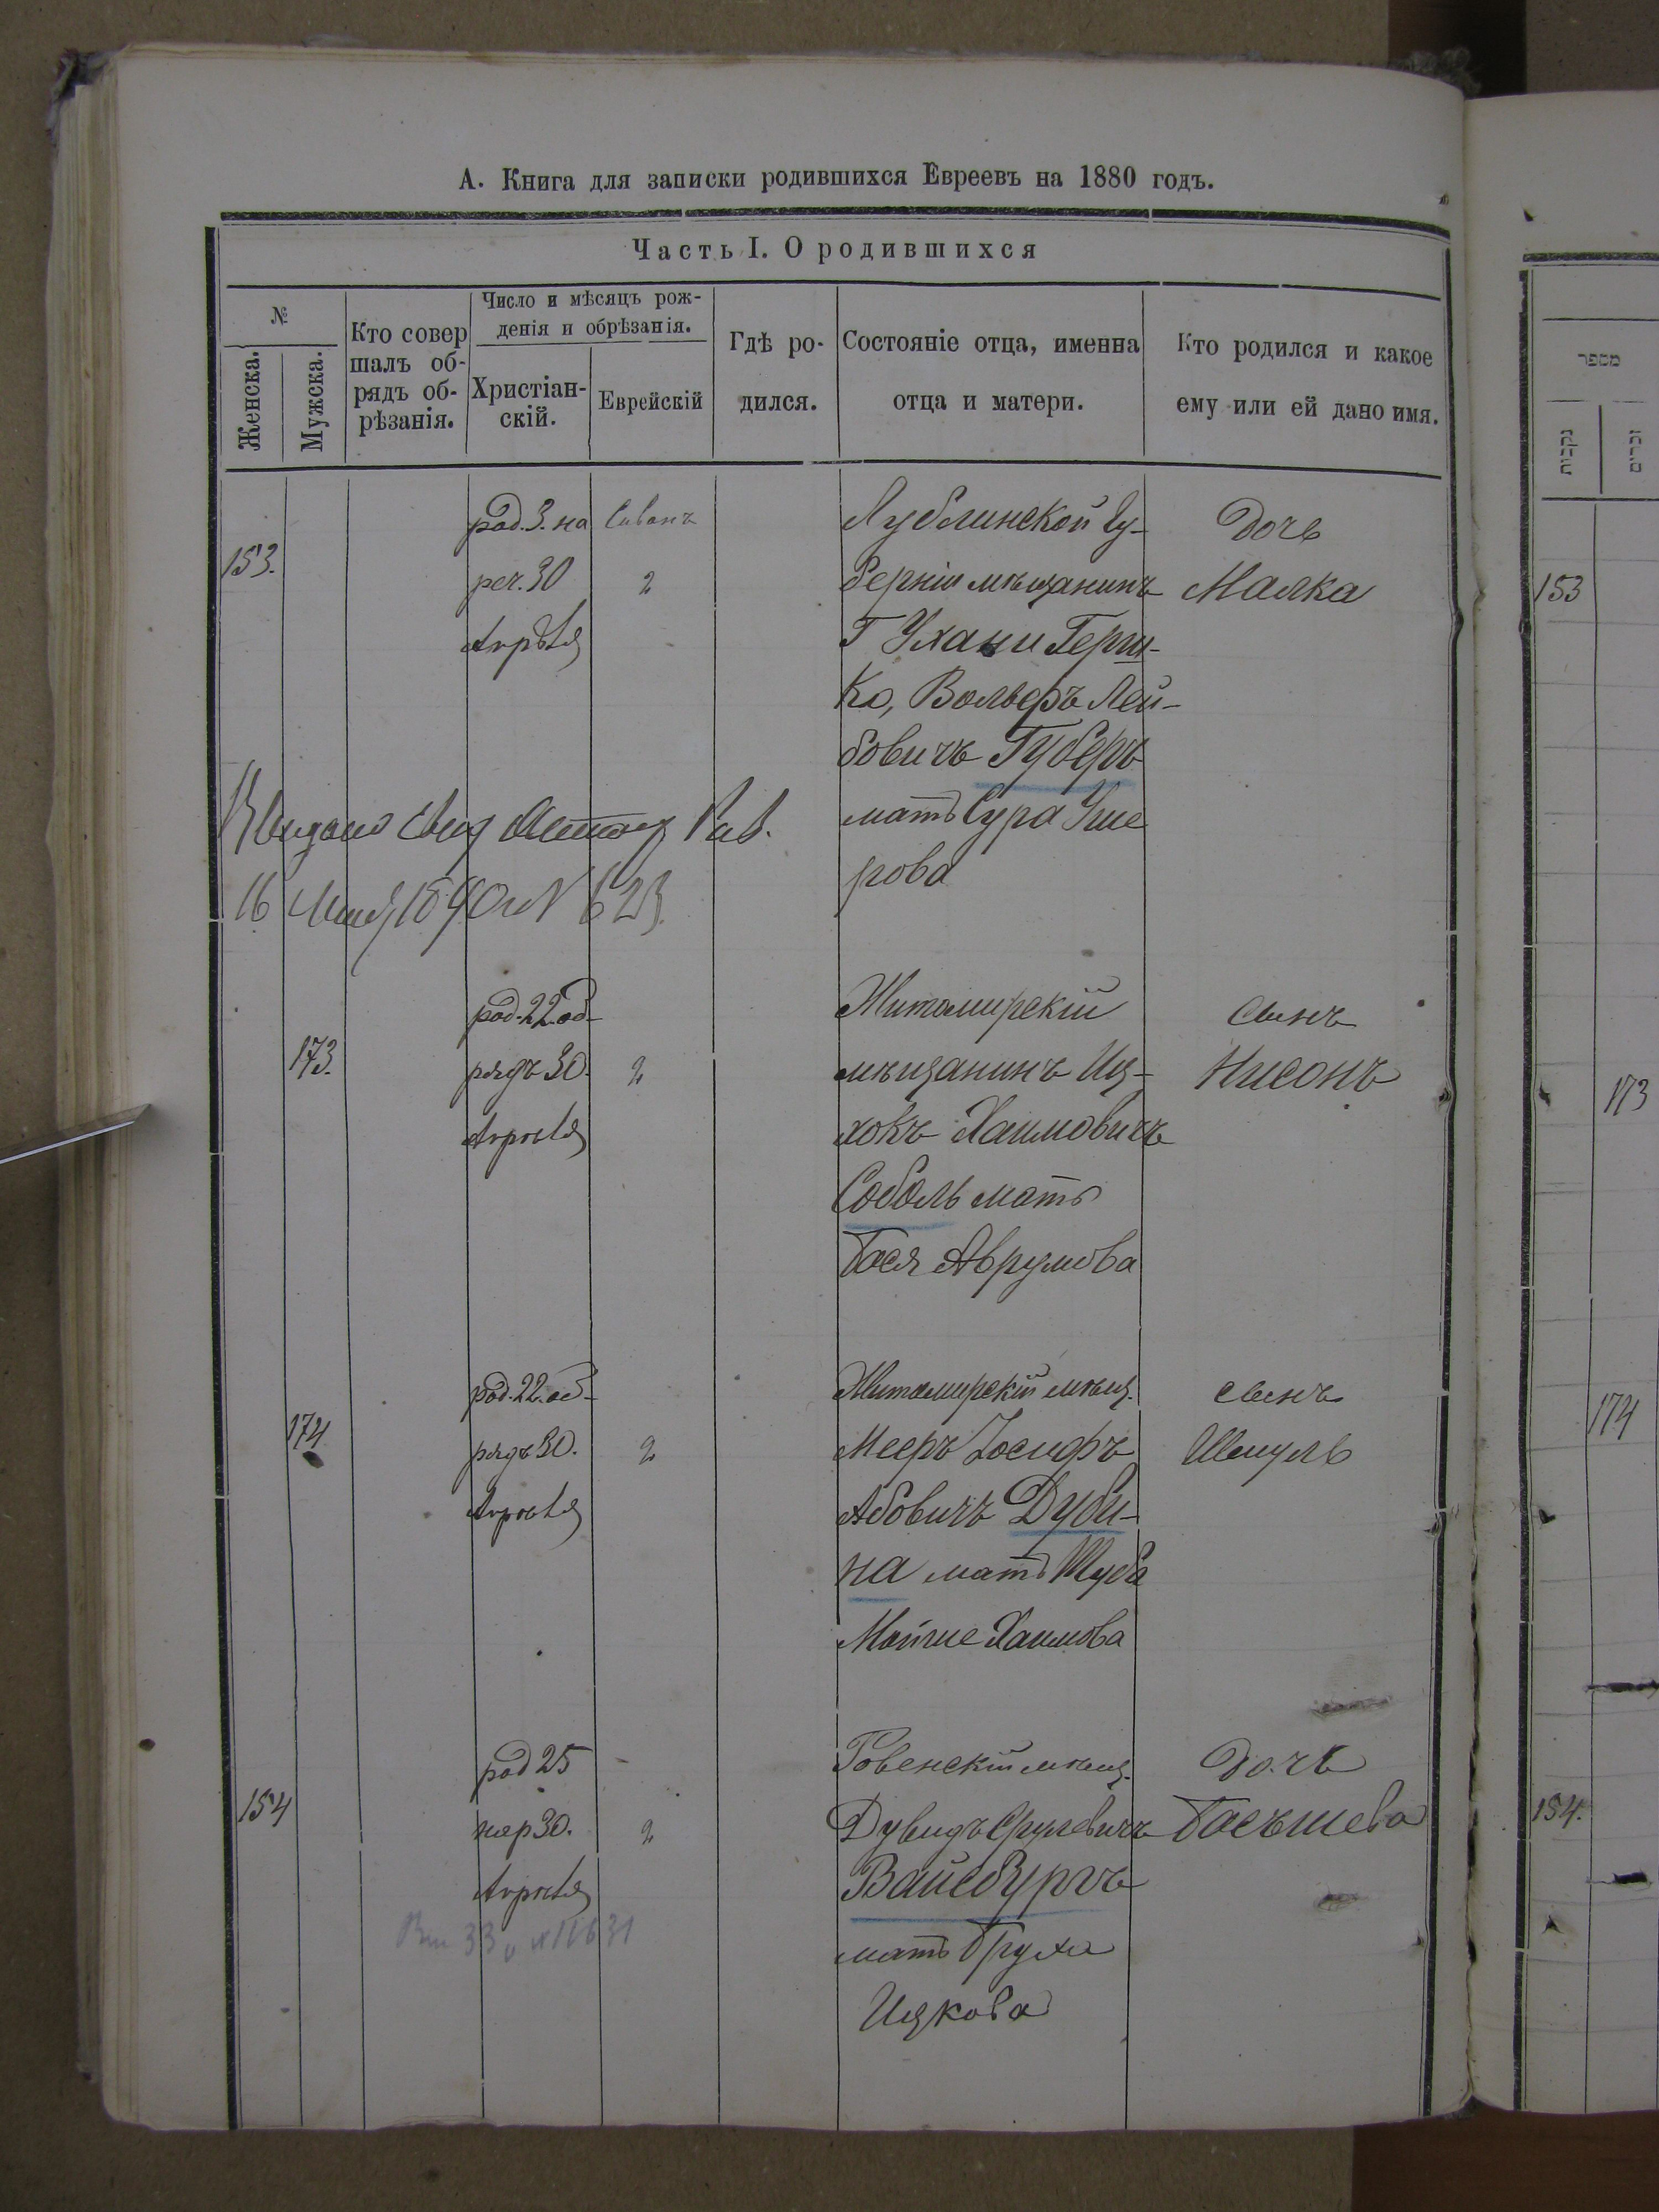 А. Книга для записки родившихся Евреевъ на 1880 годъ.
Часть I. О родившихся
№
Женска.
Мужска.
Кто совер
шалъ об-
рядъ об-
рѣзанія.
Число и мѣсяцъ рож-
денія и обрѣзанія.
Христіан-
скій.
Еврейскій
Гдѣ ро-
дился.
Состояніе отца, именна
отца и матери.
Кто родился и какое
ему или ей дано имя.
153.
род. 3. на
реч. 30
Апрѣля
Сиванъ
2
Люблинской Гу-
берніи мѣщанинъ
Г Ухани Герш-
ко, Вольфъ Лей-
бовичъ Губеръ
мать Сура Уше
рова
Дочь
Малка
Выдано Свид Рав.
16 1890 г N 623
173.
род. 22. об-
рядъ 30.
Апрѣля
2
Житомирскій
мѣщанинъ Иц-
хокъ Хаимовичъ
Соболь мать
Бася Аврумова
Сынъ
Нисонъ
174
род. 22. об-
рядъ 30.
Апрѣля
2
Житомирскій мѣщ.
Мееръ Іосифъ
Абовичъ Дуби-
на мать Туба
Хаимова
Сынъ
Шмуль
154
род 25
нар 30.
Апрѣля
2
Ровенскій мѣщ.
Дувидъ Срулевичъ
Вайсбургъ
мать Бруха
Ицкова
Дочь
Басъшева
מספר
נקבות
זכרים
153
173
174
154.